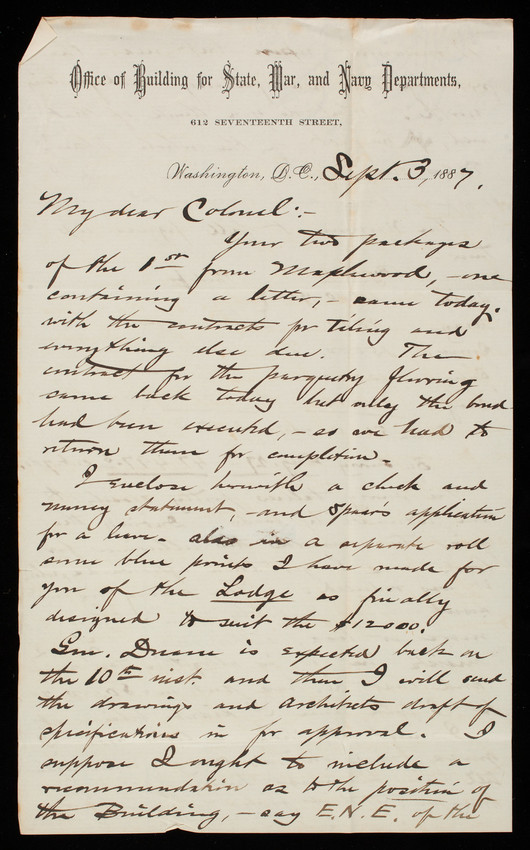 Office of Building for State, War, and Navy Departments,
612 SEVENTEENTH STREET,
Washington, D.C., Sept. 3, 1887.
My dear Colonel:-
Your two packages
of the 1st from Maplewood, - one
containing a letter, - came today.
with the contracts for tiling and
everything else due. The
contract for the parquetry flooring
came back today but only the bond
had been executed, - so we had to
return them for completion.
I enclose herewith a check and
money statement, - and Spear's application
for a leave. also in a separate roll
some blue prints I have made for
you of the Lodge as finally
designed to suit the $12000.
Gen. Duane is expected back on
the 10th inst. and then I will send
the drawings and architects draft of
specifications in for approval. I
suppose I ought to include a
recommendation as to the position of
the Building, - say E.N.E. of the